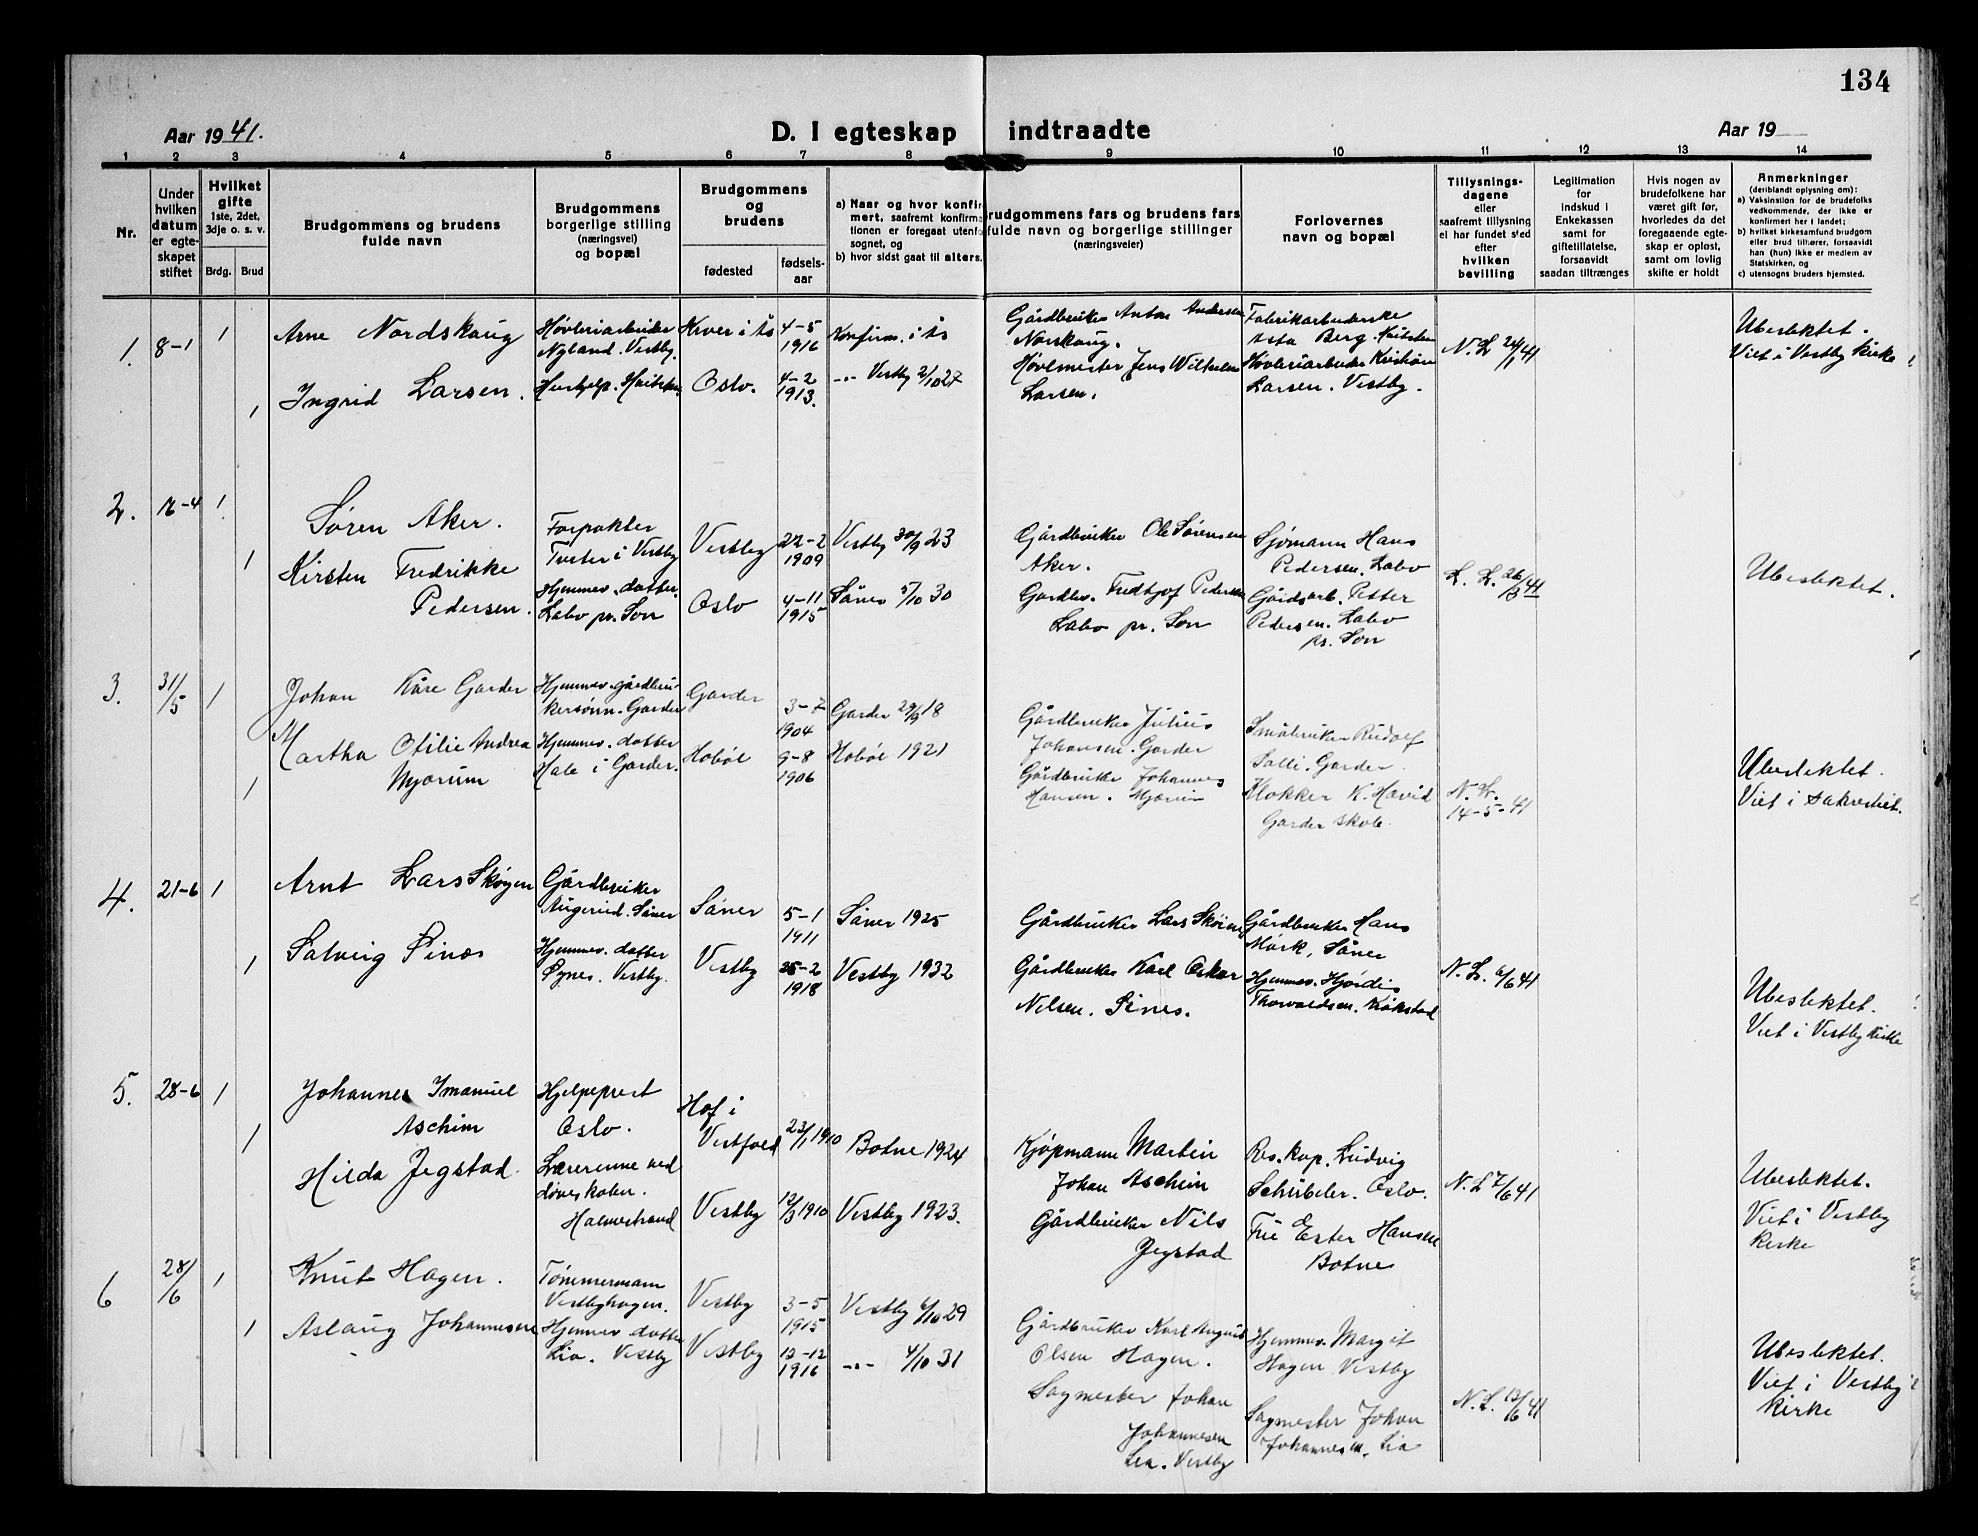 134
Aar 1941.
D. I egteskap indtraadte
Aar 19
1 2 3 4 5 6 7 8 9 10 11 12 13 14
Nr.
Under
hvilken
datum
er egte-
skapet
stiftet
Hvilket
gifte
1ste, 2det,
3dje o. s. v.
Brdg. Brud
Brudgommens og brudens
fulde navn
Brudgommens
borgerlige stilling
(næringsvei)
og bopæl
Brudgommens
og
brudens
fødested
fødsels-
aar
a) Naar og hvor konfir-
mert, saafremt konfirma-
tionen er foregaat utenfor
sognet, og
b) hvor sidst gaat til alters.
Brudgommens fars og brudens fars
fulde navn og borgerlige stillinger
(næringsveier)
Forlovernes
navn og bopæl
Tillysnings-
dagene
eller
saafremt tillysning
ei har fundet sted
efter
hvilken
bevilling
Legitimation
for
indskud i
Enkekassen
samt for
giftetillatelse,
forsaavidt
saadan tiltrænges
Hvis nogen av
brudefolkene har
været gift før,
hvorledes da det
foregaaende egte-
skap er opløst,
samt om lovlig
skifte er holdt
Anmerkninger
(deriblandt oplysning om):
a) Vaksination for de brudefolks
vedkommende, der ikke er
konfirmert her i landet;
b) hvilket kirkesamfund brudgom
eller brud tilhører, forsaavidt
han (hun) ikke er medlem av
Statskirken, og
c) utensogns bruders hjemsted.
1. 8-1 1
Arne Nordskaug
Høvleriarbeider
Nyland. Vestby.
Kroer i Ås
4-5
1916
Konfirm. i Ås
Gårdbruker Anton Andersen
Norskaug.
Fabrikarbeiderske
Berg.
N. L 24/1 41
Ubeslektet.
Viet i Vestby kirke
1
Ingrid Larsen.
Hushjelp.
Oslo.
4-2
1913.
-"- Vestby 2/10 27
Høvlmester Jens Wilhelm
Larsen.
Høvleriarbeider Kristian
Larsen. Vestby.
2. 16-4 1
Søren Aker.
Forpakter
Tveter i Vestby
Vestby
22-2
1909
Vestby 30/9 23
Gårdbruker Ole Sørensen
Aker.
Sjømann Hans
Pedersen. Labo
L. L. 26/3 41
Ubeslektet.
1
Kirsten Fredrikke
Pedersen.
Hjemmev. datter.
Labo pr. Son
Oslo
4-11
1915
Såner 5/10 30
Gardbr. Fredtjof Pedersen
Labo pr. Son
Gårdsarb. Petter
Pedersen. Labo
pr. Son
3. 31/5 1
Johan Kåre Garder
Hjemmev. gårdbru-
kersønn. Garder
Garder
3-7
1904
Garder 29/9 18
Gårdbruker Julius
Johansen. Garder
Småbruker Rudolf
Solli. Garder.
1
Martha Otilie Andrea
Mjørum
Hjemmev. datter
Hale i Garder.
Hobøl
9-8
1906
Hobøl 1921
Gårdbruker Johannes
Hansen. Mjørum
Klokker K. Hævid
Garder skole.
14-5-41
Ubeslektet.
Viet i sakrestiet.
4. 21-6 1
Arnt Lars Skøyen
Gårdbruker
Augerud. Såner
Såner
5-1
1911
Såner 1925
Gårdbruker Lars Skøien
Gårdbruker Hans
Mørk, Såner
1
Solveig Sines
Hjemmev. datter
Synes. Vestby.
Vestby
25-2
1918
Vestby 1932
Gårdbruker Karl Oskar
Nilsen. Sines.
Hjemmev. Hjørdis
Thorvaldsen. Krokstad
N. L. 6/6 41
Ubeslektet.
Viet i Vestby kirke
5. 28-6 1
Johannes Imanuel
Aschim
Hjelpeprest
Oslo.
Hof i
Vestfold
23/1 1910
Botne 1924
Kjøpmann Martin
Johan Aschim
Res. kap. Ludvig
Schübeler. Oslo.
N. L 7/6 41
Ubeslektet.
Viet i Vestby
kirke
1
Hilda Jegstad
Lærerinne ved
døveskolen.
Holmestrand
Vestby
12/3 1910
Vestby 1923.
Gårdbruker Nils
Jegstad
Frue Ester Hansen
Botne
6 28/6 1
Knut Hagen.
Tømmermann
Vestbyhagen.
Vestby
3-5
1915
Vestby 6/10 29
Gårdbruker Karl August
Olsen Hagen.
Hjemmev. Margit
Hagen Vestby
1
Aslaug Johannesen
Hjemmev datter
Lia. Vestby
Vestby
12-12
1916
-"- 4/10 31
Sagmester Johan
Johannesen
Lia. Vestby
Sagmester Johan
Johannesen, Lia
N. L. 13/6 41
Ubeslektet.
Viet i Vestby
kirke